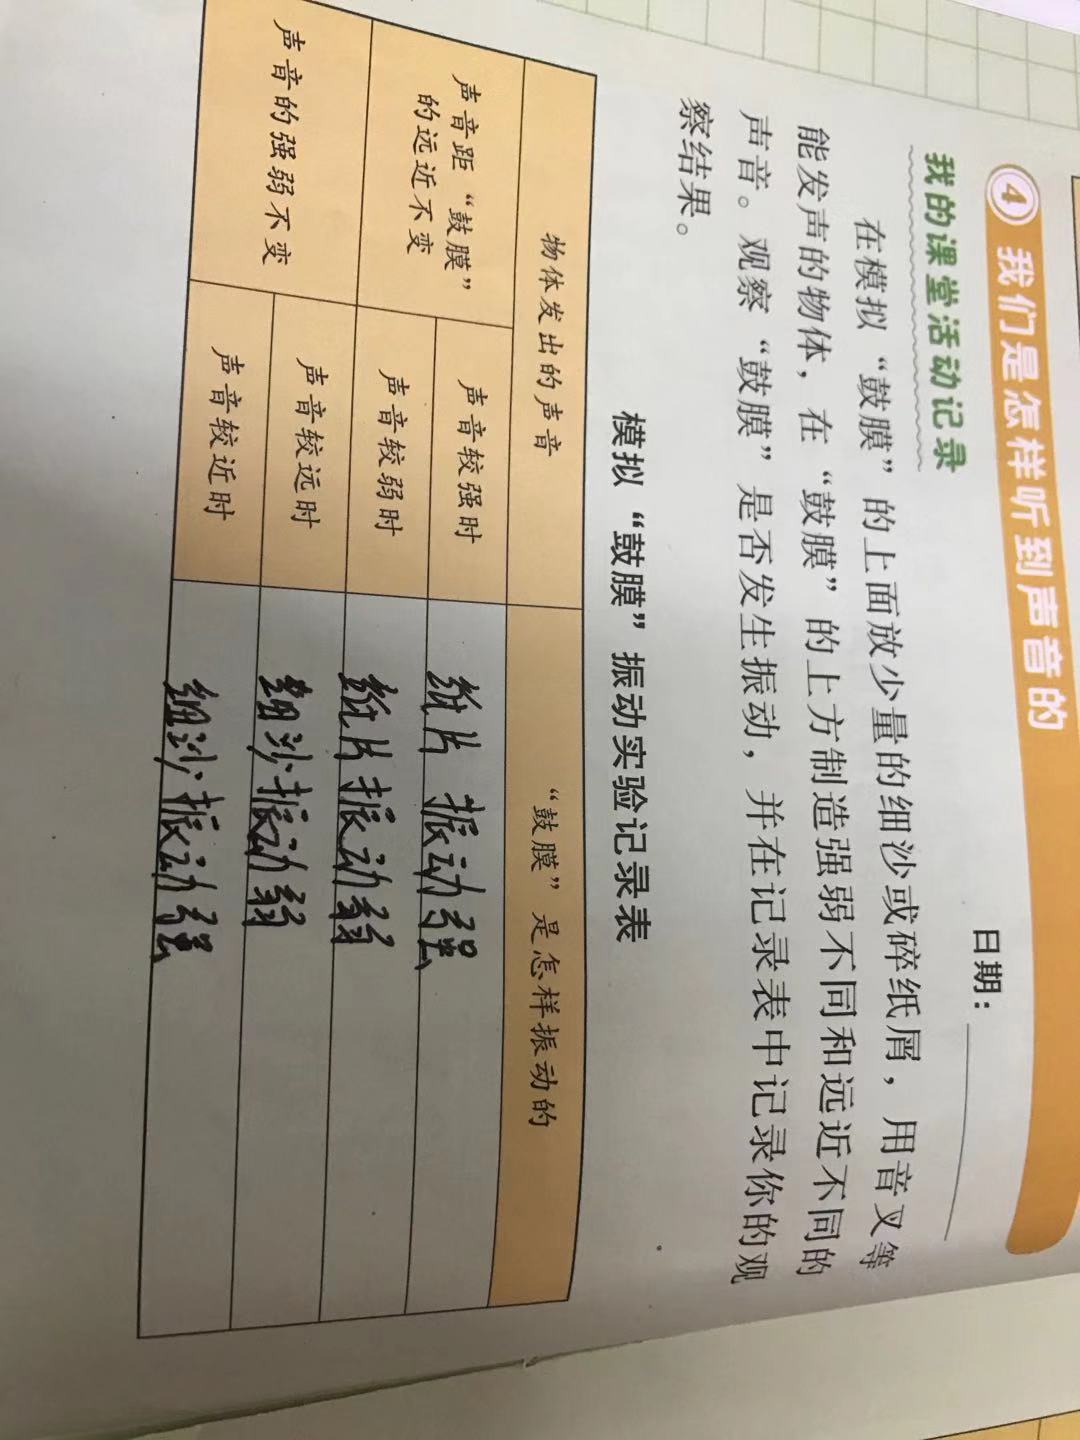 ④ 我们是怎样听到声音的
日期：
我的课堂活动记录
在模拟“鼓膜”的上面放少量的细沙或碎纸屑，用音叉等
能发声的物体，在“鼓膜”的上方制造强弱不同和远近不同的
声音。观察“鼓膜”是否发生振动，并在记录表中记录你的观
察结果。
模拟“鼓膜”振动实验记录表
物体发出的声音
“鼓膜”是怎样振动的
声音距“鼓膜”
的远近不变
声音较强时
纸片振动强
声音较弱时
纸片振动弱
声音的强弱不变
声音较远时
细沙振动弱
声音较近时
细沙振动强